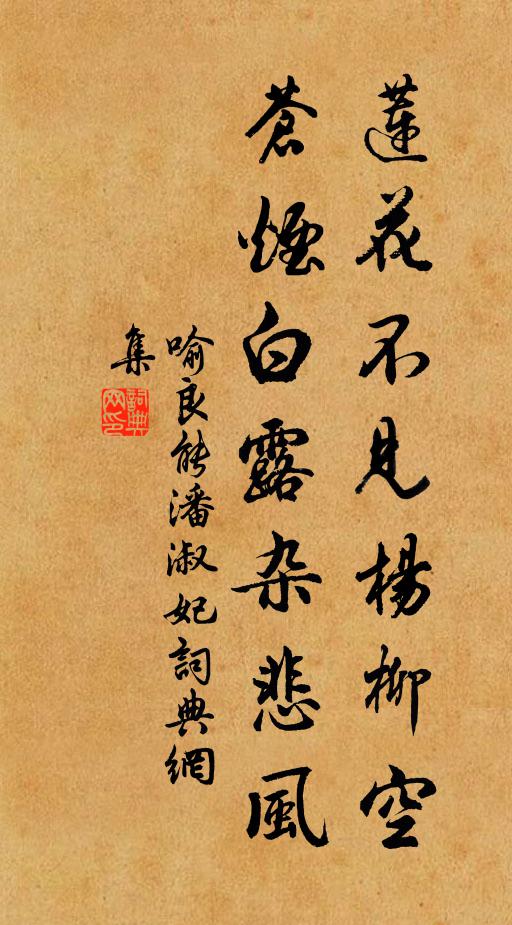 蓮花不見楊柳空
蒼煙白露杂悲風
喻良能潘淑妃詞典網
集
詞典
网印